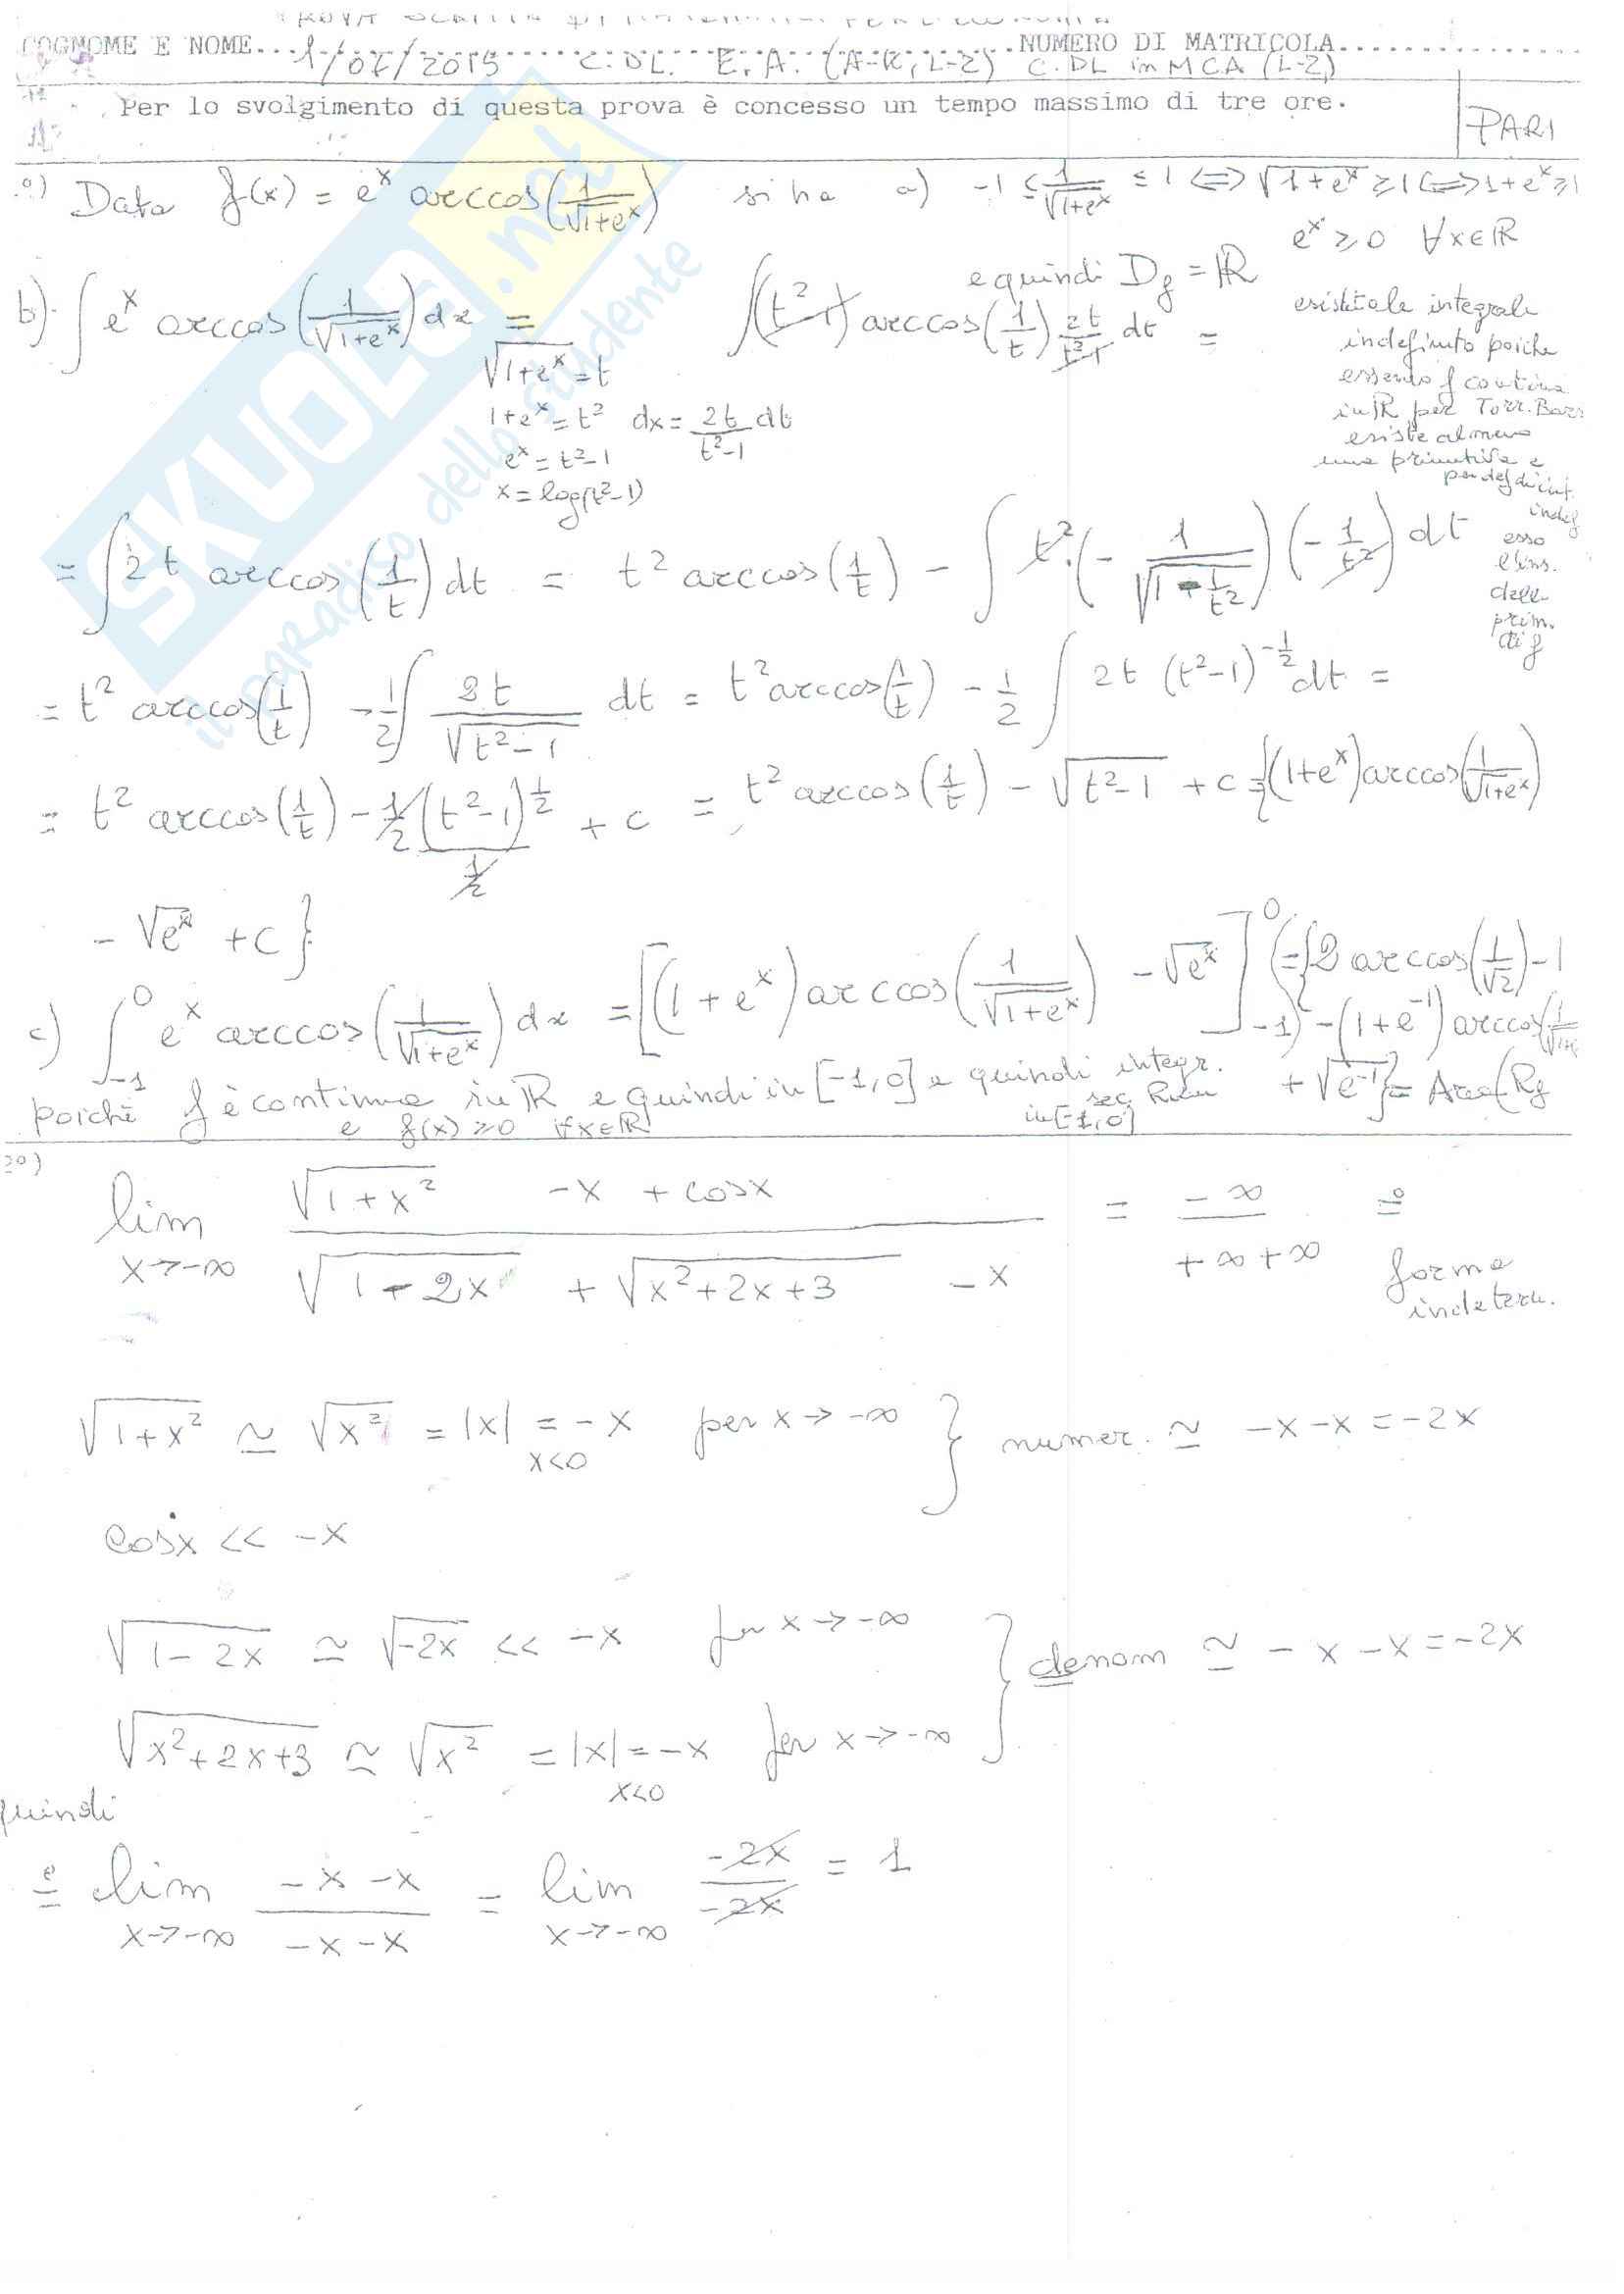 COGNOME E NOME... 1/07/2015 C.DL. E.A. (A-K, L-Z) C.DL in MCA (L-Z) NUMERO DI MATRICOLA...............
Per lo svolgimento di questa prova è concesso un tempo massimo di tre ore.
PARI
Data f(x) = e^x arccos(1/√(1+e^x)) si ha a) -1 ≤ 1/√(1+e^x) ≤ 1 <=> √(1+e^x) ≥ 1 <=> 1+e^x ≥ 1
e^x ≥ 0 ∀x∈ℝ
e quindi D_f = ℝ
b) ∫ e^x arccos(1/√(1+e^x)) dx = ∫ (t²-1) arccos(1/t) 2t/(t²-1) dt =
√(1+e^x) = t
1+e^x = t² dx = 2t/(t²-1) dt
e^x = t²-1
x = log(t²-1)
integrale
indefinito poiche
essendo f continua
in ℝ per Torr. Barr
esiste almeno
una primitiva e
per def di int.
indef
esso
e l'ins.
delle
prim.
di f
= ∫ 2t arccos(1/t) dt = t² arccos(1/t) - ∫ t²·(- 1/√(1 - 1/t²)) (- 1/t²) dt
= t² arccos(1/t) - 1/2 ∫ 2t/√(t²-1) dt = t² arccos(1/t) - 1/2 ∫ 2t (t²-1)^(-1/2) dt =
= t² arccos(1/t) - 1/2 (t²-1)^(1/2)/(1/2) + c = t² arccos(1/t) - √(t²-1) + c = {(1+e^x) arccos(1/√(1+e^x))
- √e^x + c}
c) ∫_{-1}^{0} e^x arccos(1/√(1+e^x)) dx = [(1+e^x) arccos(1/√(1+e^x)) - √e^x]_{-1}^{0} (= {2 arccos(1/√2) - 1
- (1+e^-1) arccos(1/√(1+
+ √e^-1} = Area(R_f
poiché f è continua in ℝ e quindi in [-1,0] e quindi integr.
e f(x) ≥ 0 ∀x∈ℝ
sec. Riem
in [-1,0]
lim x→-∞ (√(1+x²) - x + cosx)/(√(1-2x) + √(x²+2x+3) - x) = -∞/(+∞+∞) =
forma
indeterm.
√(1+x²) ≃ √x² = |x| = -x per x→-∞ } numer. ≃ -x-x = -2x
x<0
cosx << -x
√(1-2x) ≃ √(-2x) << -x per x→-∞ } denom ≃ -x-x = -2x
√(x²+2x+3) ≃ √x² = |x| = -x per x→-∞
x<0
quindi
= lim x→-∞ (-x-x)/(-x-x) = lim x→-∞ (-2x)/(-2x) = 1
SKUOLA.net
il paradiso dello studente